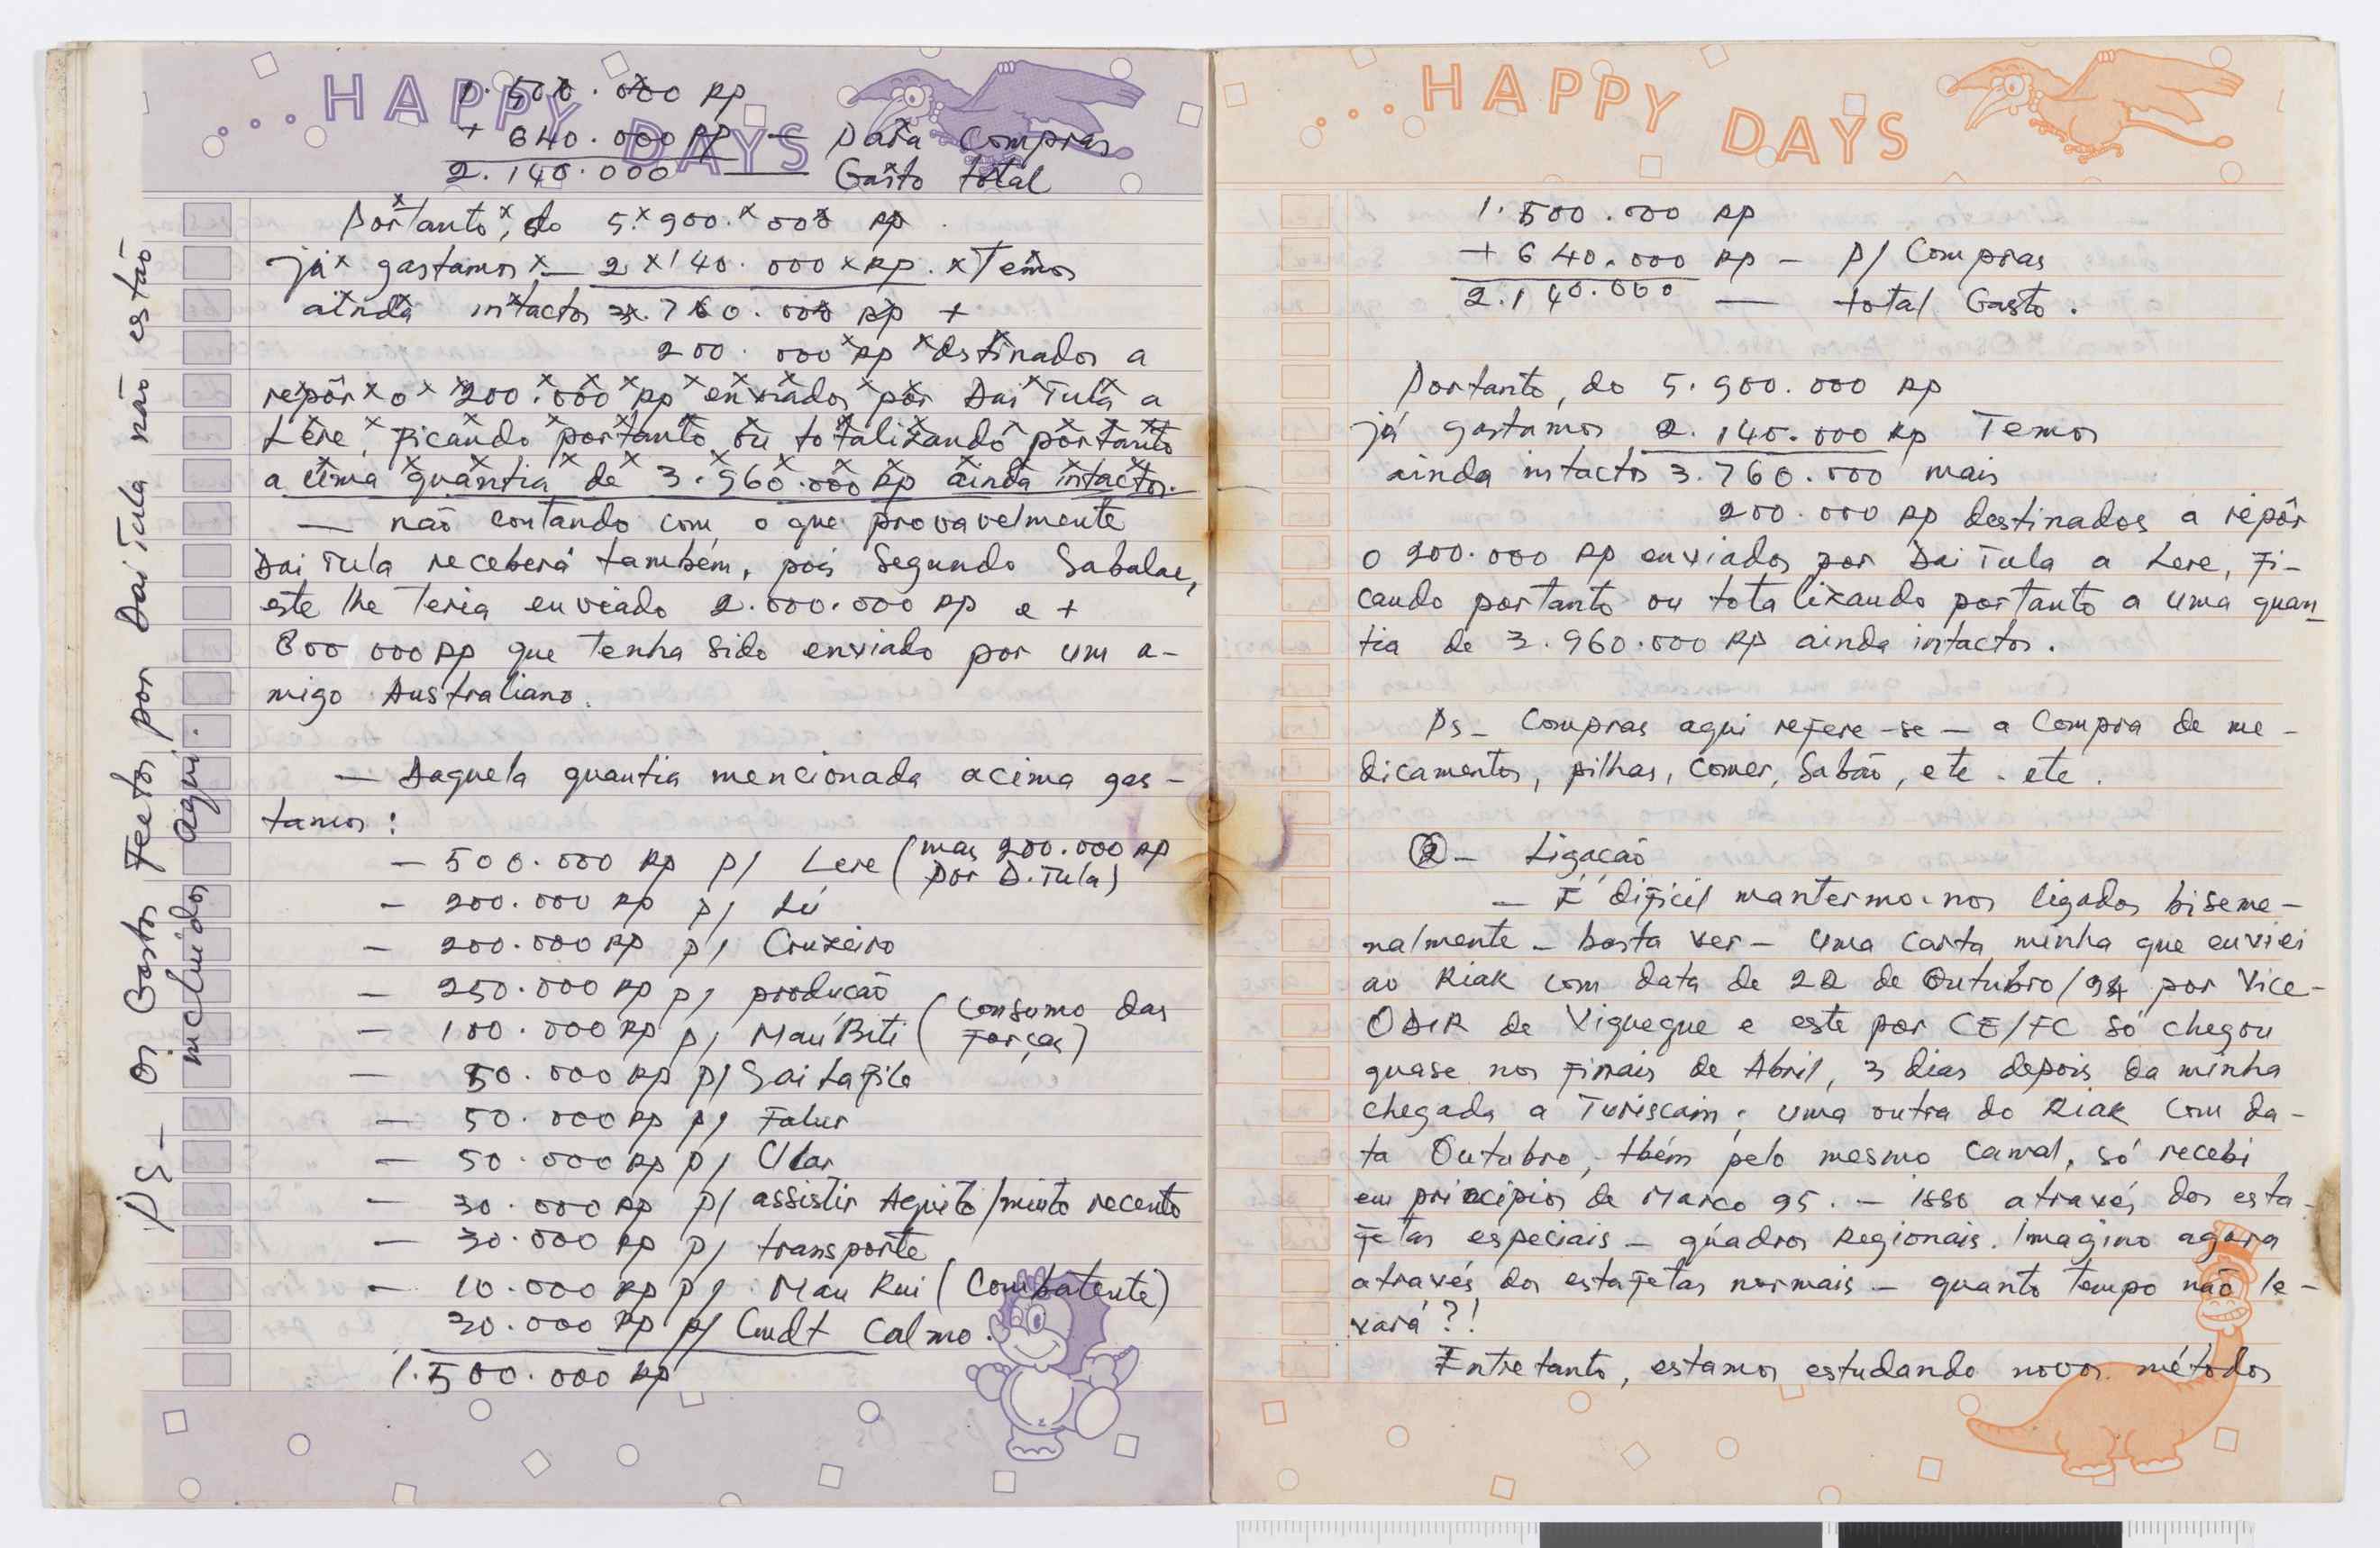 ...HAPPY DAYS
1.500.000 Rp
+ 640.000 Rp — para Compras
2.140.000 — Gasto total
Portanto, do 5.900.000 Rp
já gastamos — 2.140.000 Rp. Temos
ainda intactos 3.760.000 Rp +
200.000 Rp destinados a
repôr o 200.000 Rp enviados por Dai Tula a
Lere, ficando portanto ou totalizando portanto
a uma quantia de 3.960.000 Rp ainda intactos.
— não contando com o que provavelmente
Dai Tula receberá também, pois segundo Sabalae,
este lhe teria enviado 2.000.000 Rp e +
800 000 Rp que tenha sido enviado por um a-
migo Australiano.
— Daquela quantia mencionada acima gas-
tamos:
— 500.000 Rp p/ Lere (mas 200.000 Rp
por D.Tula)
— 200.000 Rp p/ Lú
— 200.000 Rp p/ Cruzeiro
— 250.000 Rp p/ produção
— 100.000 Rp p/ Mau Biti (Consumo das
Forças)
— 50.000 Rp p/ Sai Lafilo
— 50.000 Rp p/ Falur
— 50.000 Rp p/ Ular
— 30.000 Rp p/ assistir Aquito/muito recente
— 30.000 Rp p/ transporte
— 10.000 Rp p/ Mau Rui (Combatente)
30.000 Rp p/ Cmdt Calmo.
1.500.000 Rp
PS— Os Gastos Feitos por Dai Tula não estão
incluídos aqui.
...HAPPY DAYS
1.500.000 Rp
+ 640.000 Rp — p/ Compras
2.140.000 — total Gasto.
Portanto, do 5.900.000 Rp
já gastamos 2.140.000 Rp Temos
ainda intactos 3.760.000 mais
200.000 Rp destinados a repôr
o 200.000 Rp enviados por Dai Tula a Lere, fi-
cando portanto ou totalizando portanto a uma quan-
tia de 3.960.000 Rp ainda intactos.
Ps— Compras aqui refere-se — a Compra de me-
dicamentos, pilhas, comer, Sabão, etc. etc.
2— Ligação
— É difícil mantermo-nos ligados biseme-
nalmente — basta ver — uma carta minha que enviei
ao Riak com data de 22 de Outubro/94 por Vice-
ODIR de Viqueque e este por CE/FC só chegou
quase nos finais de Abril, 3 dias depois da minha
chegada a Turiscain; uma outra do Riak com da-
ta Outubro, tbém pelo mesmo canal, só recebi
em princípios de Março 95. — isso através dos esta-
fetas especiais — quadros Regionais. Imagino agora
através dos estafetas normais — quanto tempo não le-
vará?!
Entretanto, estamos estudando novos métodos